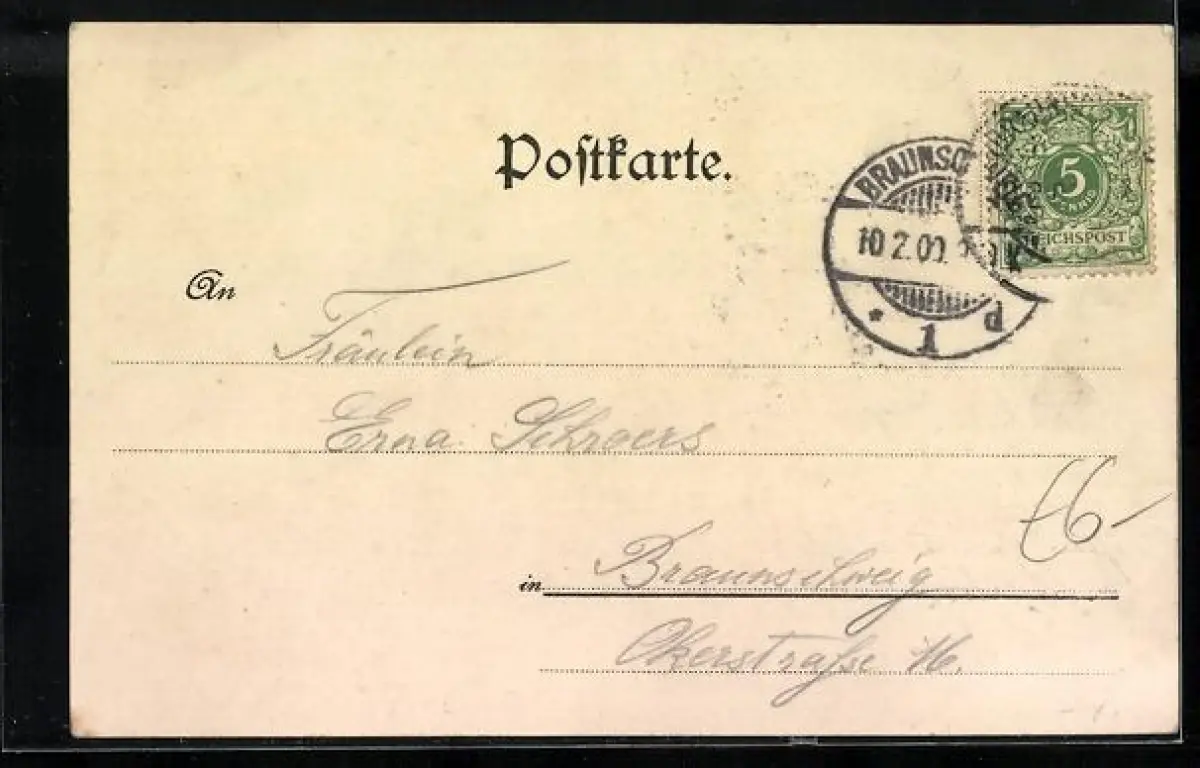 Postkarte.
BRAUNSC
10 2.00.
* 1 d
5
REICHSPOST
An
Fräulein
Erna Schroers
in Braunschweig
Okerstraße 16.